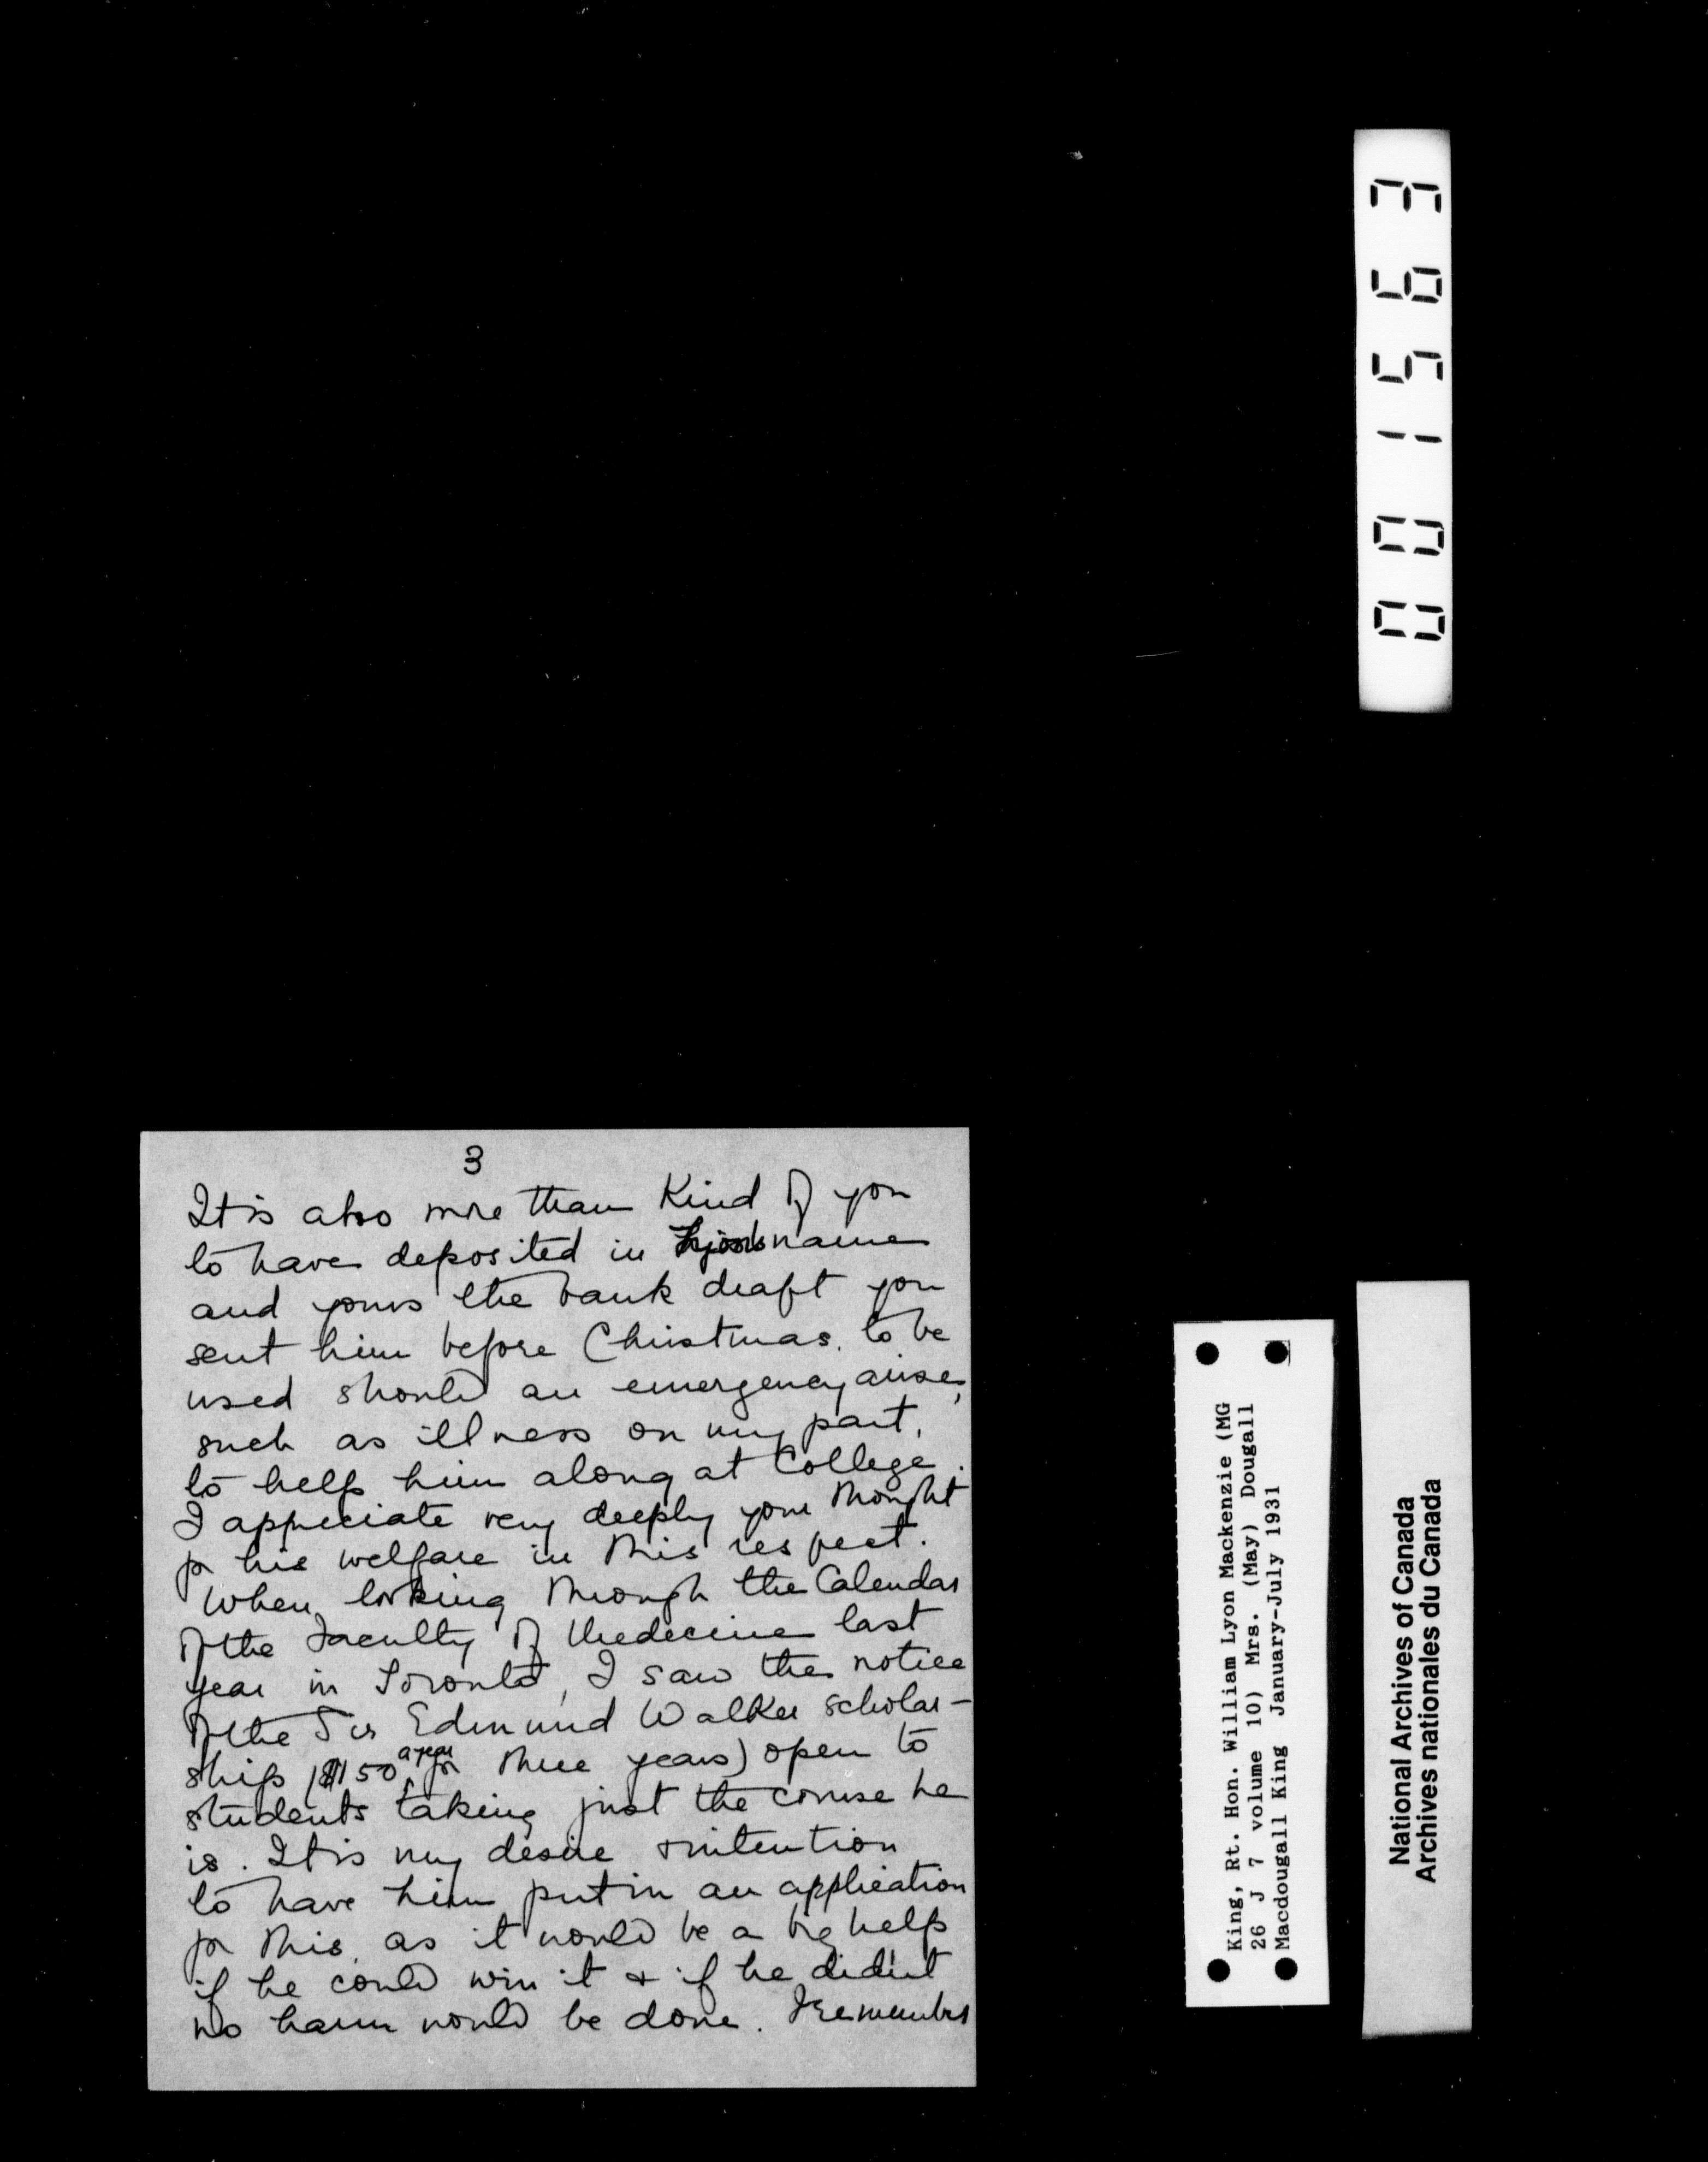 3
It is also more than Kind of you
to have deposited in name
and yours the bank draft you
sent him before Christmas, to be
used should an emergency arise,
such as illness on my part,
to help him along at College.
I appreciate very deeply your thought
for his welfare in this respect.
When looking through the Calendar
of the Faculty of Medecine last
year in Toronto, I saw the notice
of the Sir Edmund Walker scholar-
ship ($150 a year for three years) open to
students taking just the course he
is. It is my desire & intention
to have him put in an application
for this, as it would be a big help
if he could win it & if he didn't
no harm would be done. I remember
001563
King, Rt. Hon. William Lyon Mackenzie (MG
26 J 7 volume 10) Mrs. (May) Dougall
Macdougall King January-July 1931
National Archives of Canada
Archives nationales du Canada